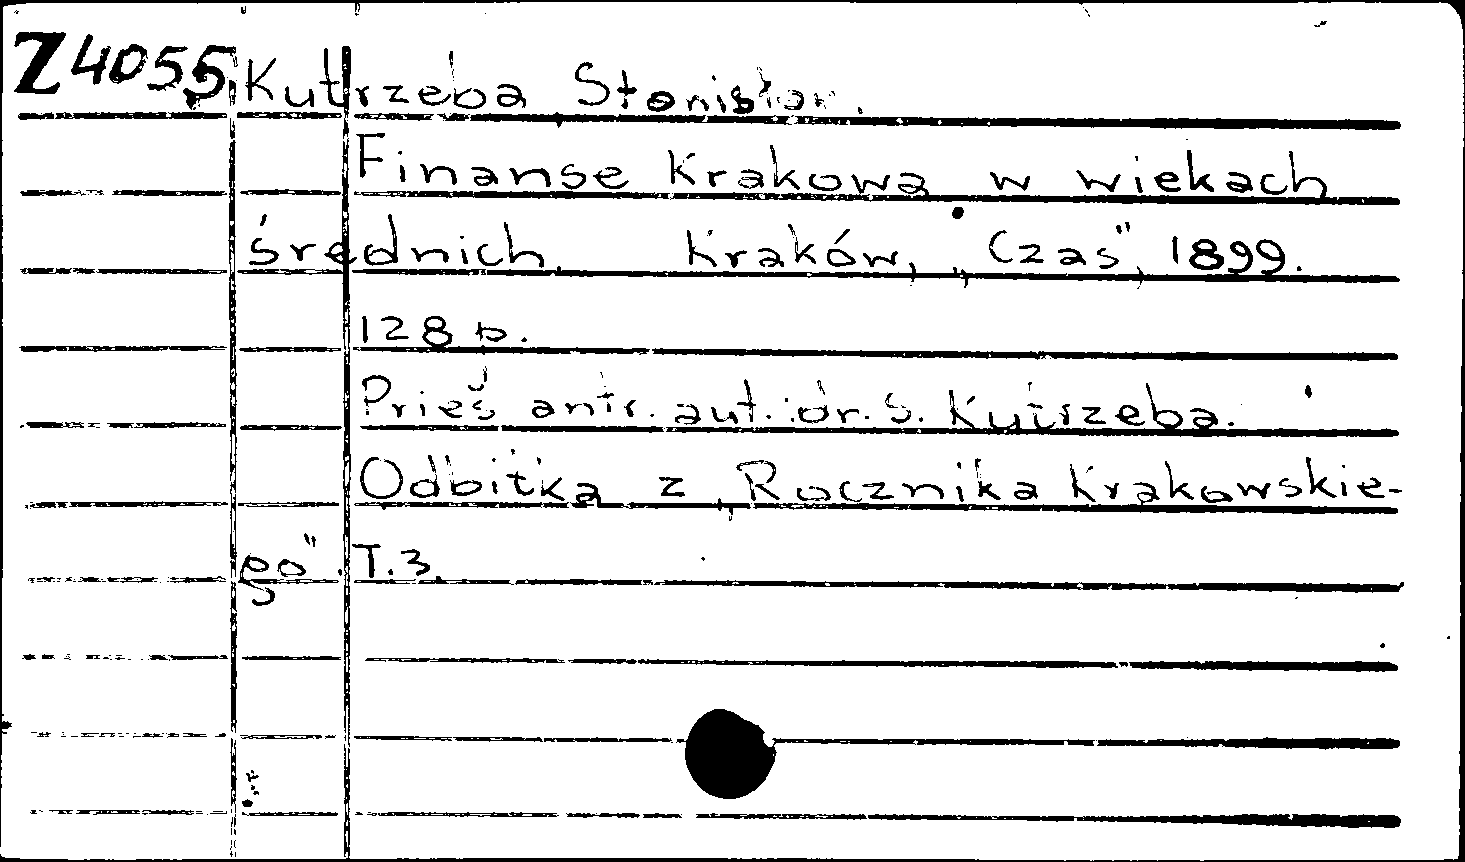 Z4055 Kutrzeba Stanisław.
Finanse Krakowa w wiekach
średnich. Kraków, „Czas", 1899.
128 p.
Prieš antr. aut.: dr. S. Kutrzeba.
Odbitka z „Rocznika Krakowskie-
go". T.3.